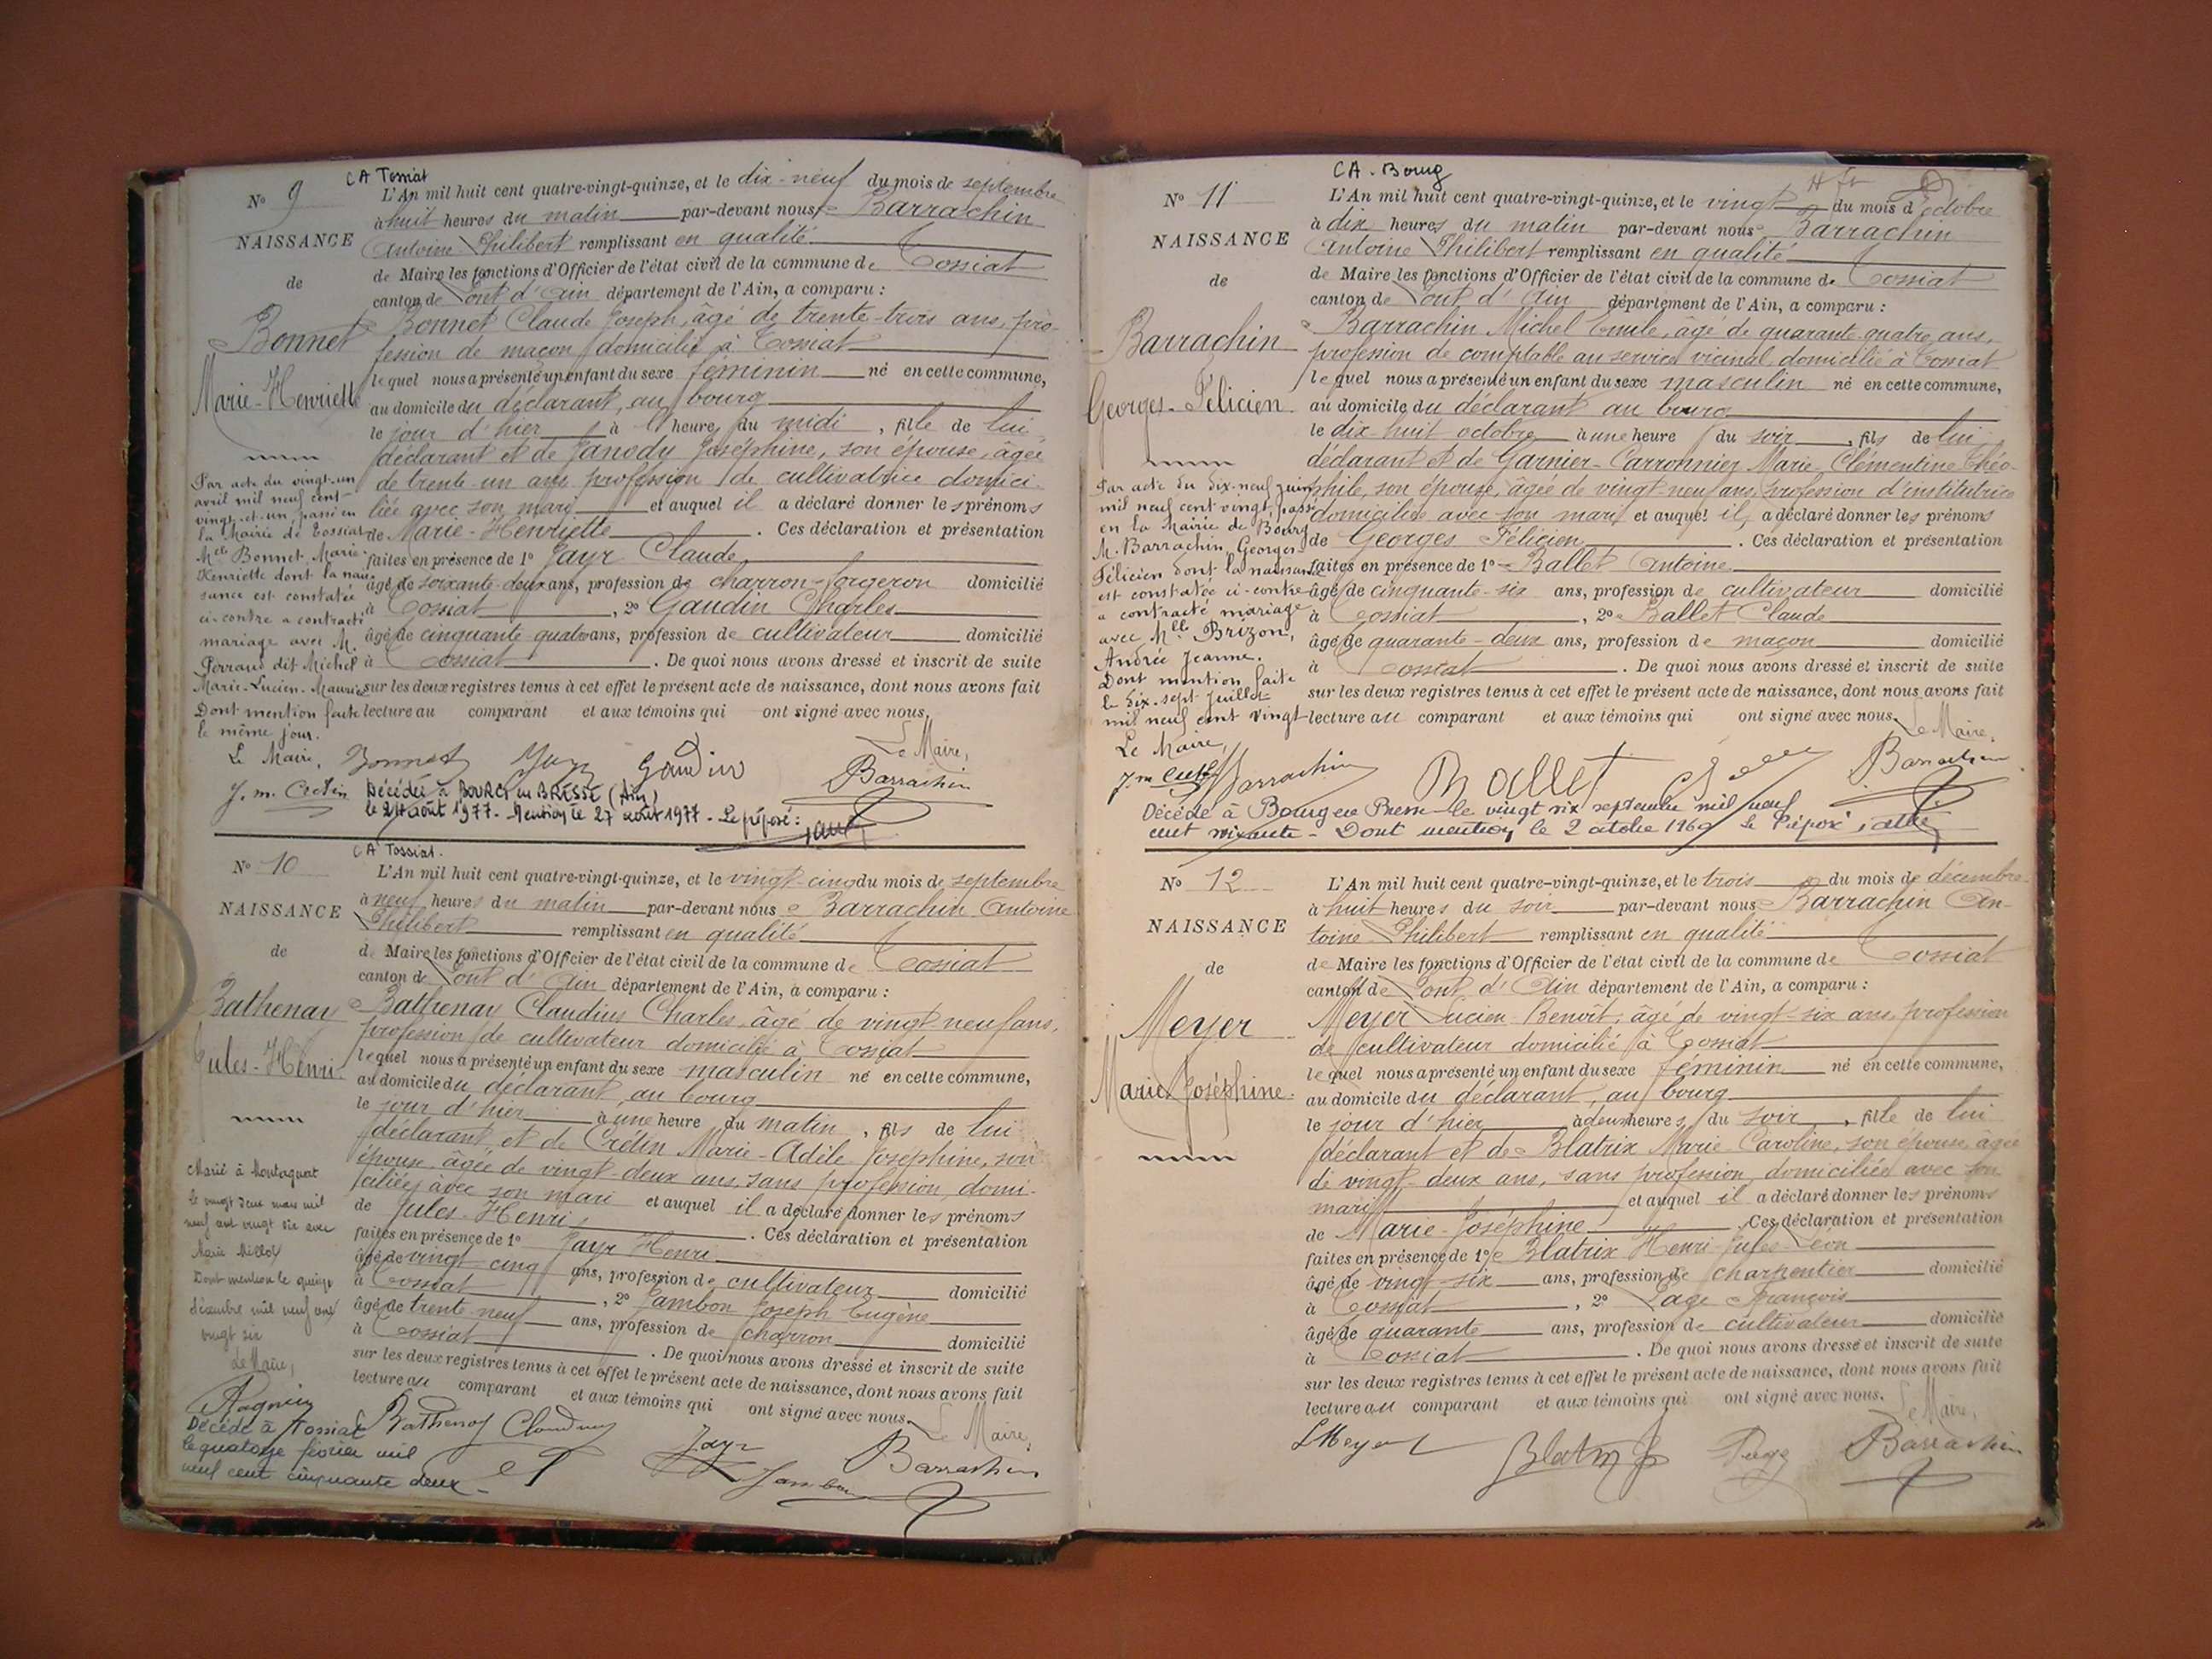 CA Tossiat
N° 9
L'An mil huit cent quatre-vingt-quinze, et le dix-neuf du mois de septembre
à huit heures du matin par-devant nous Barrachin
NAISSANCE
Antoine Philibert remplissant en qualité
de Maire les fonctions d'Officier de l'état civil de la commune de Tossiat
de
canton de Pont d'Ain département de l'Ain, a comparu :
Bonnet
Bonnet Claude Joseph, âgé de trente-trois ans, pro-
fession de maçon domicilié à Tossiat
Marie-Henriette
lequel nous a présenté un enfant du sexe féminin né en cette commune,
au domicile du déclarant, au bourg
le jour d'hier à heures du midi, fille de lui
déclarant et de Janody Joséphine, son épouse, âgée
de trente-un ans profession de cultivatrice domici-
liée avec son mari et auquel il a déclaré donner les prénoms
de Marie-Henriette. Ces déclaration et présentation
faites en présence de 1° Jayr Claude
âgé de soixante-deux ans, profession de charron-forgeron domicilié
à Tossiat, 2° Gaudin Charles
âgé de cinquante-quatre ans, profession de cultivateur domicilié
à Tossiat. De quoi nous avons dressé et inscrit de suite
sur les deux registres tenus à cet effet le présent acte de naissance, dont nous avons fait
lecture au comparant et aux témoins qui ont signé avec nous.
Par acte du vingt-un
avril mil neuf cent
vingt-et-un, passé en
la Mairie de Tossiat
Melle Bonnet Marie-
Henriette dont la nais-
sance est constatée
ci-contre a contracté
mariage avec M.
Perraud dit Michel
Marie-Lucien-Maurice
Dont mention faite
le même jour.
Le Maire,
J.m. Cretin
Bonnet Jayr Gaudin
Le Maire,
Barrachin
Décédée à BOURG en BRESSE (Ain)
le 24 août 1977. Mention le 27 août 1977. Le préposé :
CA Tossiat.
N° 10
L'An mil huit cent quatre-vingt-quinze, et le vingt-cinq du mois de septembre
à neuf heures du matin par-devant nous Barrachin Antoine
NAISSANCE
Philibert remplissant en qualité
de
de Maire les fonctions d'Officier de l'état civil de la commune de Tossiat
canton de Pont d'Ain département de l'Ain, a comparu :
Bathenay
Bathenay Claudius Charles, âgé de vingt-neuf ans,
profession de cultivateur domicilié à Tossiat
Jules-Henri
lequel nous a présenté un enfant du sexe masculin né en cette commune,
au domicile du déclarant, au bourg
le jour d'hier à une heure du matin, fils de lui
déclarant et de Crétin Marie-Adèle-Joséphine, son
épouse, âgée de vingt-deux ans, sans profession, domi-
ciliée avec son mari et auquel il a déclaré donner les prénoms
de Jules-Henri. Ces déclaration et présentation
faites en présence de 1° Jayr Henri
âgé de vingt-cinq ans, profession de cultivateur domicilié
à Tossiat, 2° Jambon Joseph Eugène
âgé de trente-neuf ans, profession de charron domicilié
à Tossiat. De quoi nous avons dressé et inscrit de suite
sur les deux registres tenus à cet effet le présent acte de naissance, dont nous avons fait
lecture au comparant et aux témoins qui ont signé avec nous.
Marié à Montagnat
le vingt deux mars mil
neuf cent vingt six avec
Marie Milloz
Dont mention le quinze
décembre mil neuf cent
vingt six
Le Maire,
Décédé à Tossiat
le quatorze février mil
neuf cent cinquante deux -
Bathenay Claudius
Jayr
Jambon
Le Maire,
Barrachin
CA. Bourg
N° 11
L'An mil huit cent quatre-vingt-quinze, et le vingt du mois d'octobre
à dix heures du matin par-devant nous Barrachin
NAISSANCE
Antoine Philibert remplissant en qualité
de
de Maire les fonctions d'Officier de l'état civil de la commune de Tossiat
canton de Pont d'Ain département de l'Ain, a comparu :
Barrachin
Barrachin Michel Emile, âgé de quarante-quatre ans,
profession de comptable au service vicinal, domicilié à Tossiat
Georges-Félicien
lequel nous a présenté un enfant du sexe masculin né en cette commune,
au domicile du déclarant au bourg
le dix-huit octobre à une heure du soir, fils de lui
déclarant et de Garnier-Carronnier Marie-Clémentine Théo-
phile, son épouse, âgée de vingt-neuf ans, profession d'institutrice
domiciliée avec son mari et auquel il a déclaré donner les prénoms
de Georges Félicien. Ces déclaration et présentation
faites en présence de 1° Ballet Antoine
âgé de cinquante-six ans, profession de cultivateur domicilié
à Tossiat, 2° Ballet Claude
âgé de quarante-deux ans, profession de maçon domicilié
à Tossiat. De quoi nous avons dressé et inscrit de suite
sur les deux registres tenus à cet effet le présent acte de naissance, dont nous avons fait
lecture au comparant et aux témoins qui ont signé avec nous.
Par acte du dix-neuf juin
mil neuf cent vingt, passé
en la Mairie de Bourg
M. Barrachin Georges-
Félicien dont la naissance
est constatée ci-contre
a contracté mariage
avec Mlle Brizon,
Andrée Jeanne.
Dont mention faite
le dix-sept juillet
mil neuf cent vingt
Le Maire,
Barrachin
Ballet
Le Maire,
Barrachin
Décédé à Bourg en Bresse le vingt six septembre mil neuf
cent soixante - Dont mention le 2 octobre 1960 Le Préposé
N° 12
L'An mil huit cent quatre-vingt-quinze, et le trois du mois de décembre
à huit heures du soir par-devant nous Barrachin An-
NAISSANCE
toine Philibert remplissant en qualité
de
de Maire les fonctions d'Officier de l'état civil de la commune de Tossiat
canton de Pont d'Ain département de l'Ain, a comparu :
Meyer
Meyer Lucien-Benoit, âgé de vingt-six ans, profession
de cultivateur domicilié à Tossiat
lequel nous a présenté un enfant du sexe féminin né en cette commune,
Marie Joséphine
au domicile du déclarant, au bourg
le jour d'hier à deux heures du soir, fille de lui
déclarant et de Blatrix Marie-Caroline, son épouse, âgée
de vingt-deux ans, sans profession, domiciliée avec son
mari et auquel il a déclaré donner les prénoms
de Marie-Joséphine. Ces déclaration et présentation
faites en présence de 1° Blatrix Henri-Jules-Léon
âgé de vingt-six ans, profession de charpentier domicilié
à Tossiat, 2° Page François
âgé de quarante ans, profession de cultivateur domicilié
à Tossiat. De quoi nous avons dressé et inscrit de suite
sur les deux registres tenus à cet effet le présent acte de naissance, dont nous avons fait
lecture au comparant et aux témoins qui ont signé avec nous.
Le Maire,
LMeyer Blatrix Page Barrachin